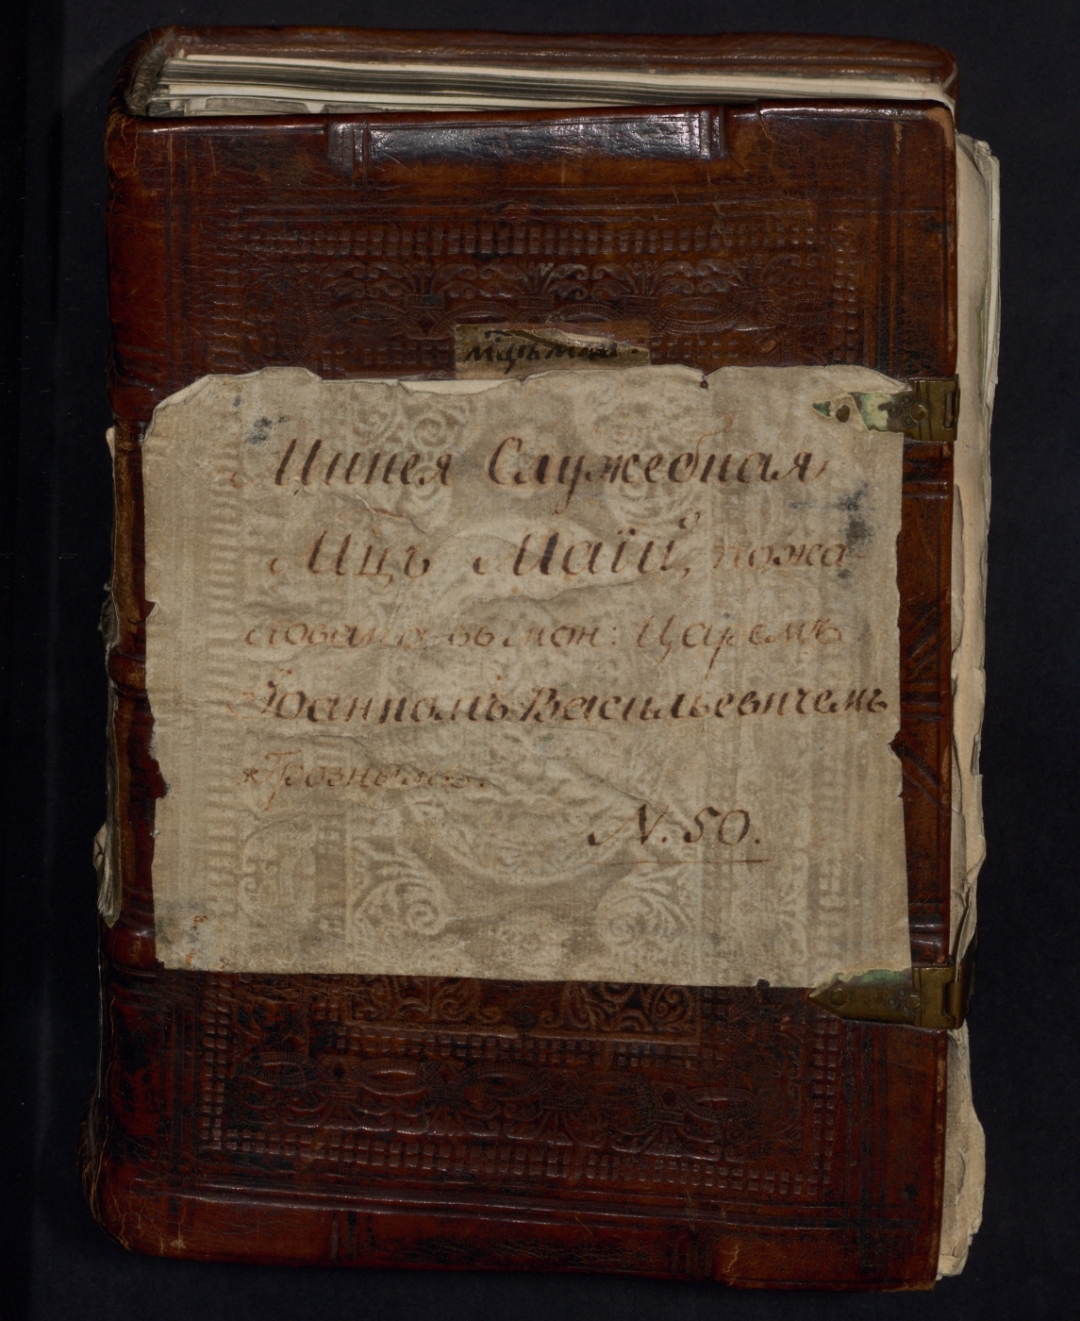 Минея Служебная,
Мц҃ъ Маїй, пожа
лована въ мон: Царемъ
Іоанномъ Васильевичемъ
Грознымъ.
N. 50.